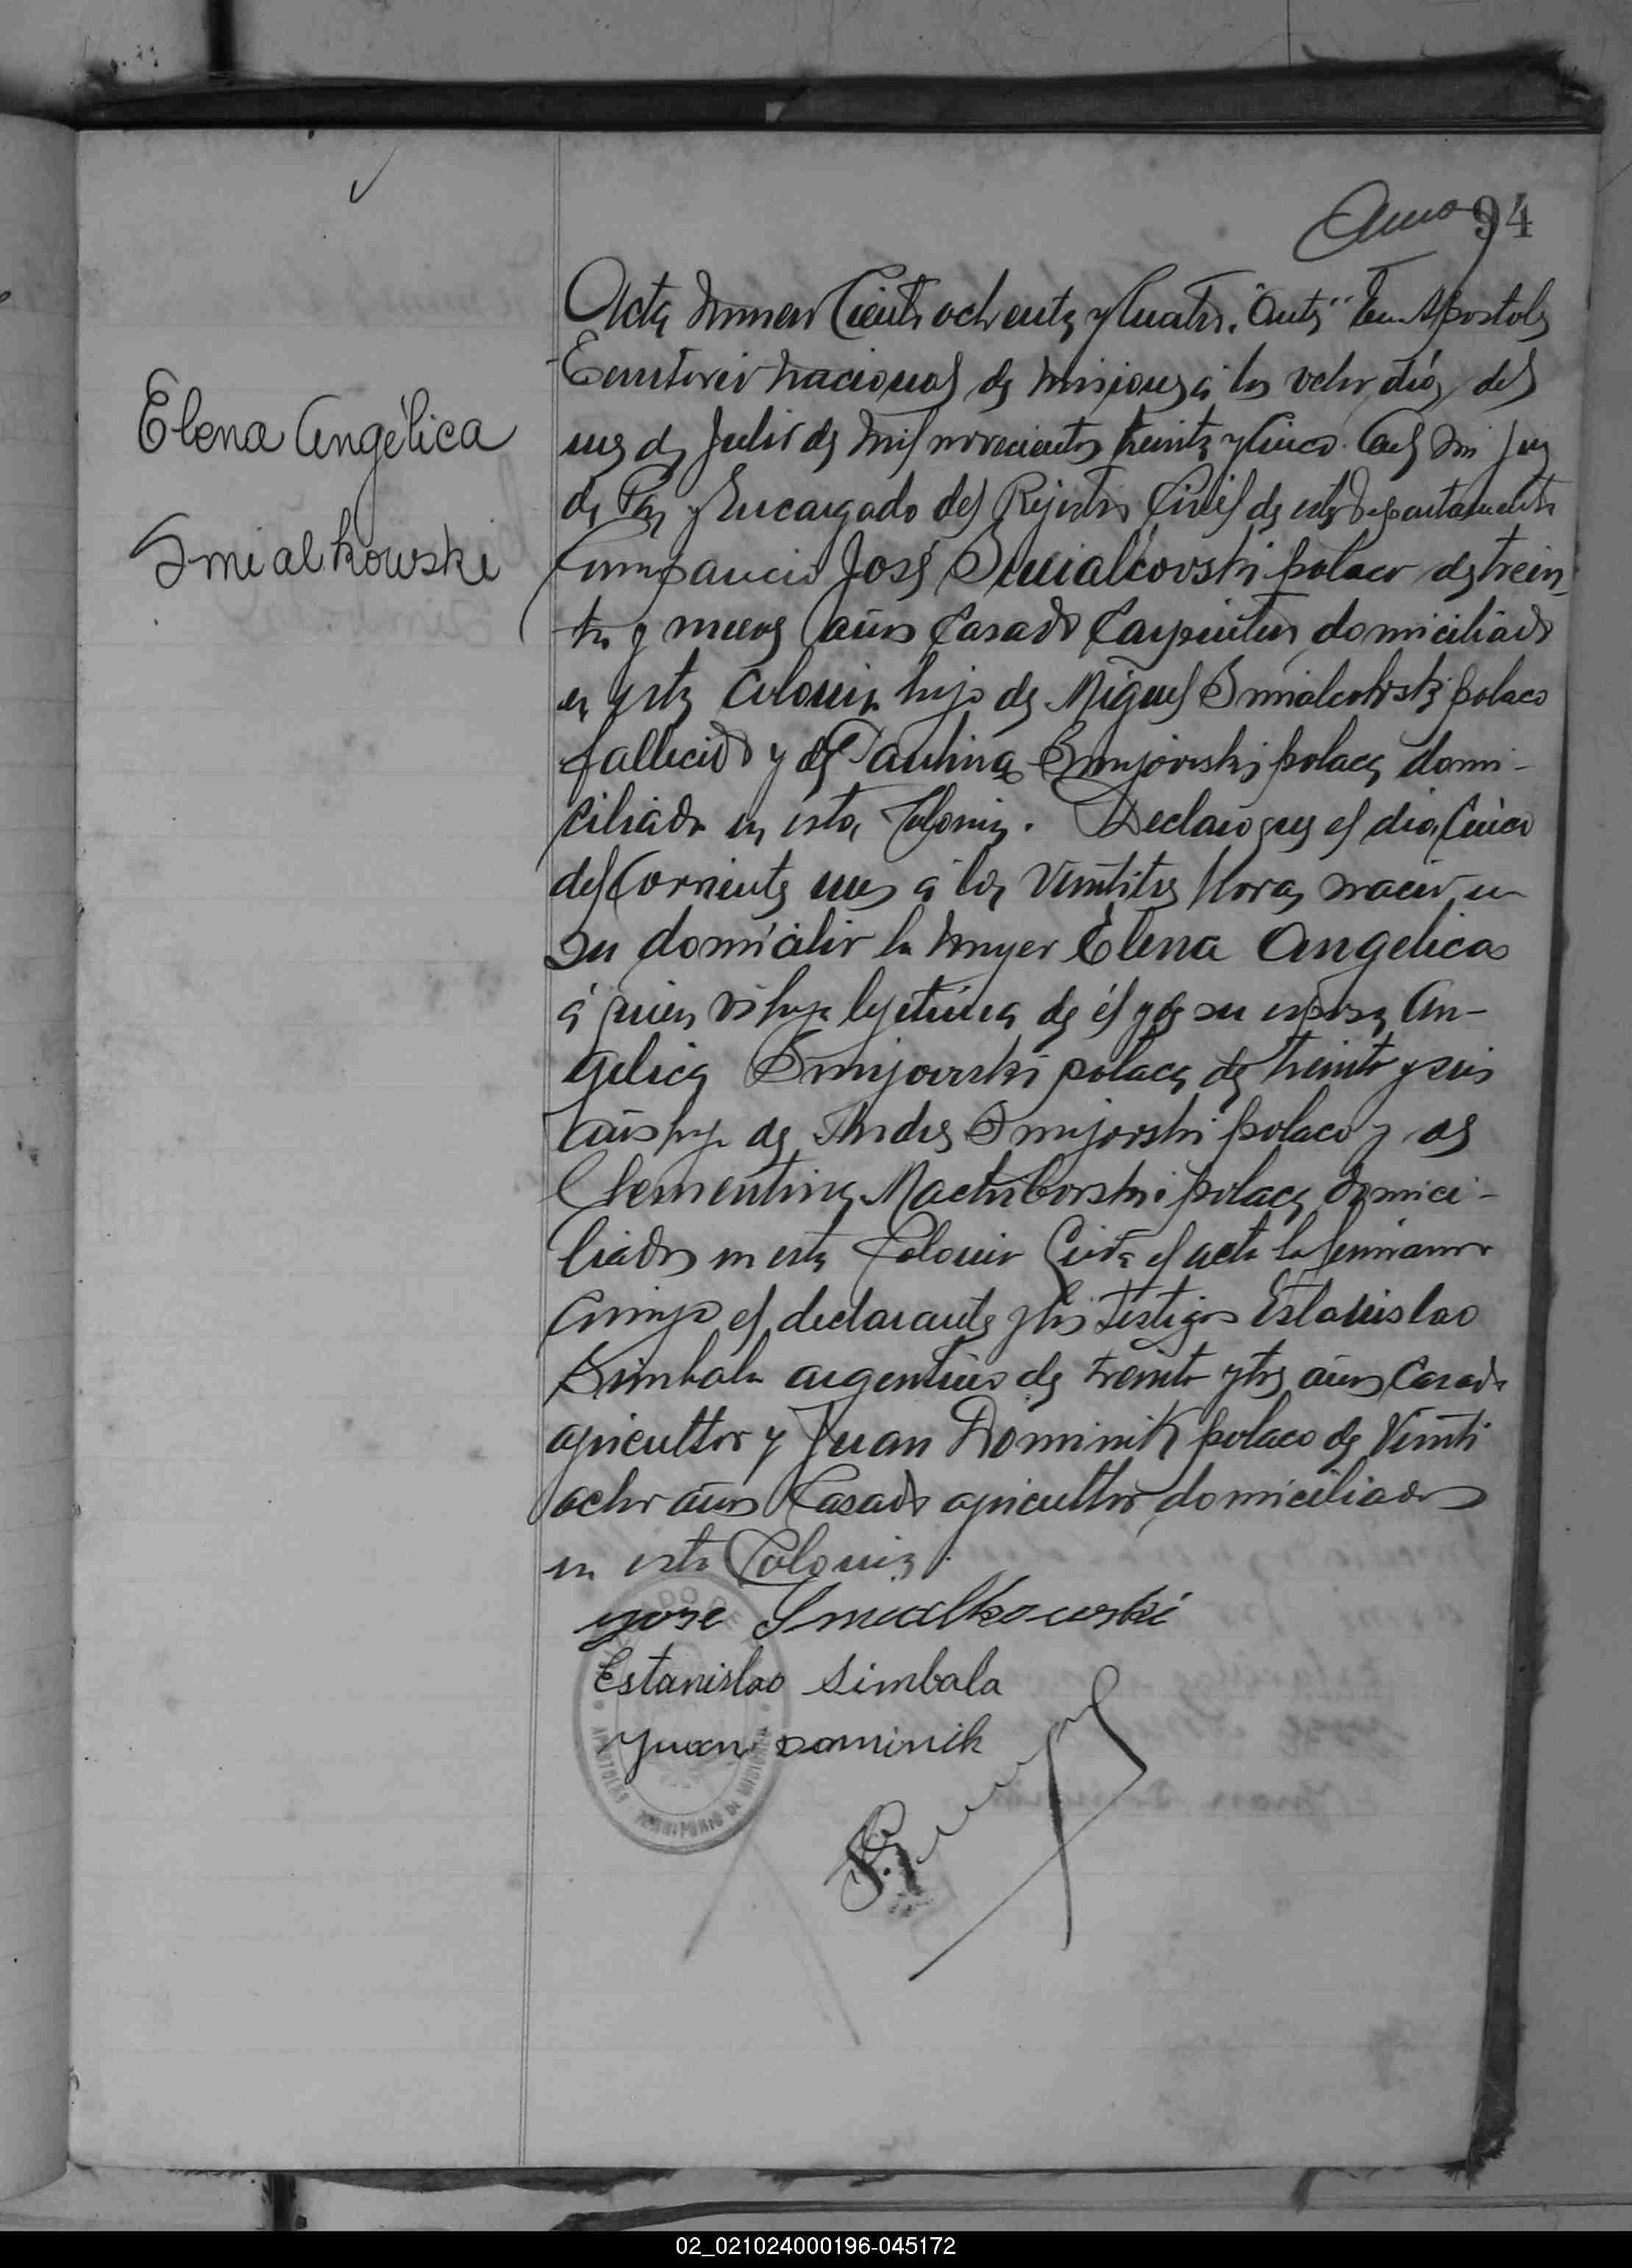 94
Elena Angélica
Smialkowski
Acta Numero Ciento ochenta y Cuatro. En Apostoles
Territorio Nacional de Misiones á los ocho dias del
mes de Julio de Mil novecientos treinta y Cinco. Juez
de Paz y Encargado del Rejistro Civil de este Departamento
Comparecio José Smialcovski polaco de trein-
ta y nueve años Casado Carpintero domiciliado
en esta Colonia hijo de Miguel Smialcovski polaco
fallecido y de Paulina polaca domi-
ciliada en esta Colonia. Declaro que el dia Cinco
del Corriente mes á las Veintitres Horas nacio en
su domicilio la Mujer Elena Angelica
á quien vi hija lejitima de él y de su esposa An-
gelica Smijovski polaca de treinta y seis
años hija de Andres Smijovski polaco y de
Clementina polaca domici-
liados en esta Colonia el acta la firmaron
Conmigo el declarante y los testigos Estanislao
Simbala argentino de treinta y tres años Casado
agricultor y Juan Dominik polaco de Veinti
ocho años Casado agricultor domiciliados
en esta Colonia.
Jose Smialkowski
Estanislao Simbala
Juan Dominik
APOSTOLES TERRITORIO DE MISIONES
02_021024000196-045172